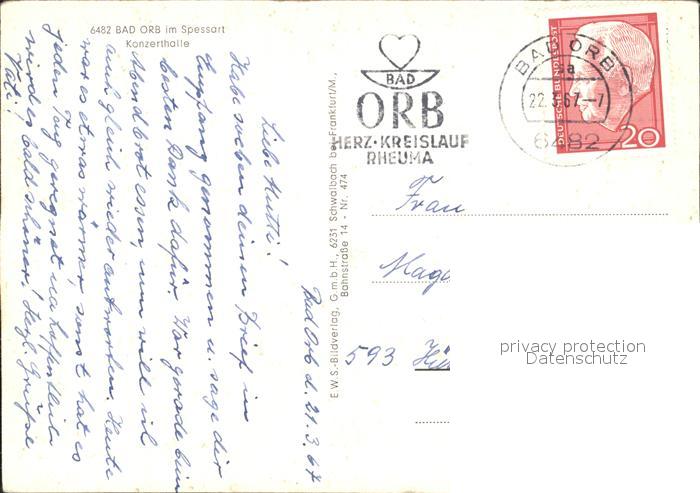 6482 BAD ORB im Spessart
Konzerthalle
Bad Orb d. 21.3.67
Liebe Mutti!
Habe soeben deinen Brief in
Empfang genommen u. sage dir
besten Dank dafür. War gerade beim
Abendbrot essen, nun will ich
auch gleich wieder antworten. Heute
war es etwas wärmer, sonst hat es
jeden Tag geregnet na hoffentlich
wird es bald schöner! Herzl. Grüße
Vati!
E.W.S.-Bildverlag, G.m.b.H., 6231 Schwalbach bei Frankfurt/M.,
Bahnstraße 14 - Nr. 474
BAD
ORB
HERZ·KREISLAUF
RHEUMA
BAD ORB
a
22.3.67.-7
6482
DEUTSCHE BUNDESPOST
20
Frau
593
privacy protection
Datenschutz